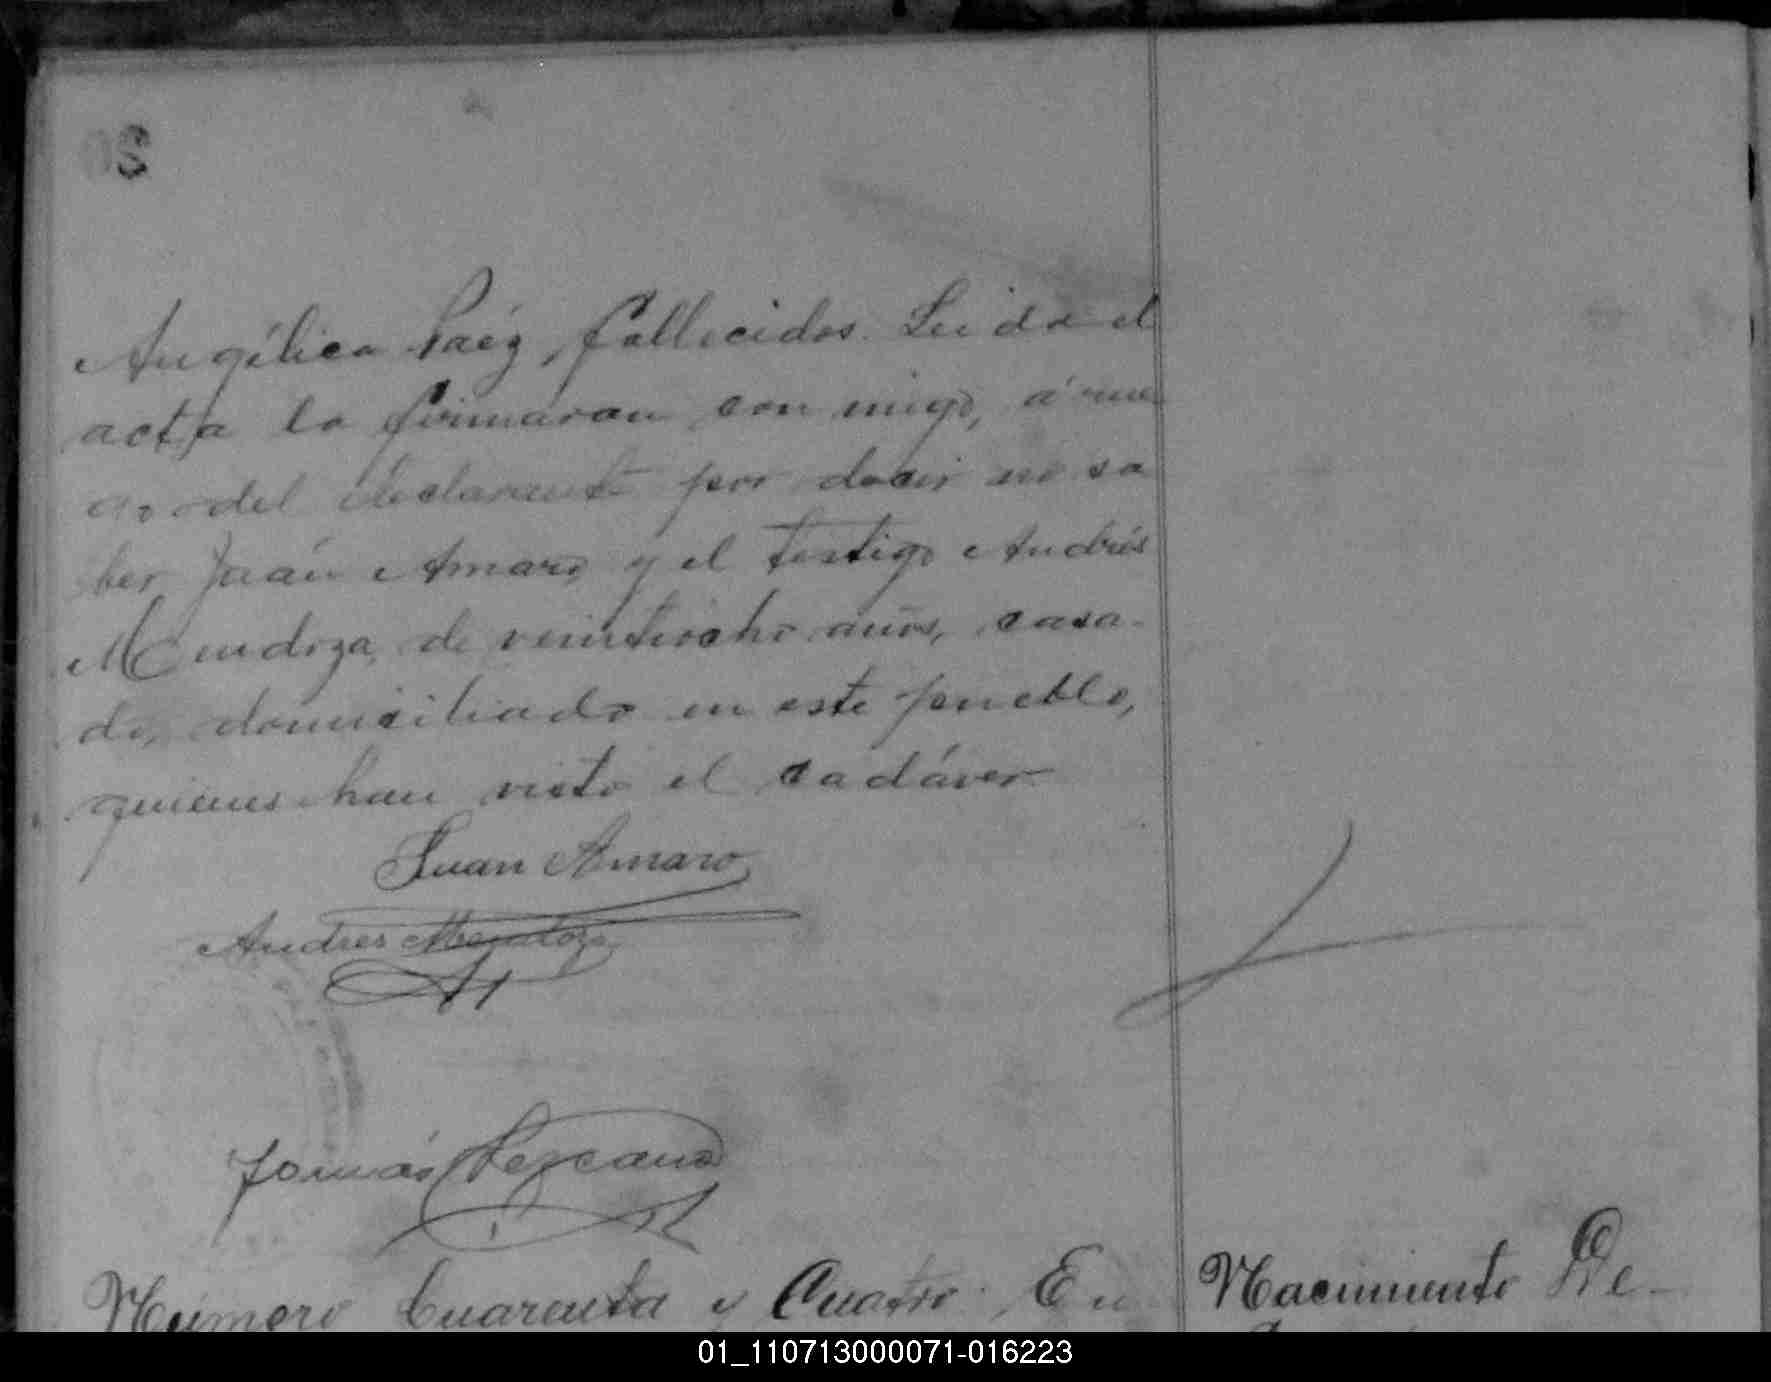 Angélica Paéz, fallecidos. Leida el
acta la firmaron con migo, á rue
go del declarante por decir no sa
ber Juán Amaro y el testigo Andrés
Mendoza, de veintiocho años, casa-
do, domiciliado en este pueblo,
quienes han visto el cadáver
Juan Amaro
Andres Mendoza
Tomás Lezcano
Número Cuarenta y Cuatro. En
Nacimiento De-
01_110713000071-016223